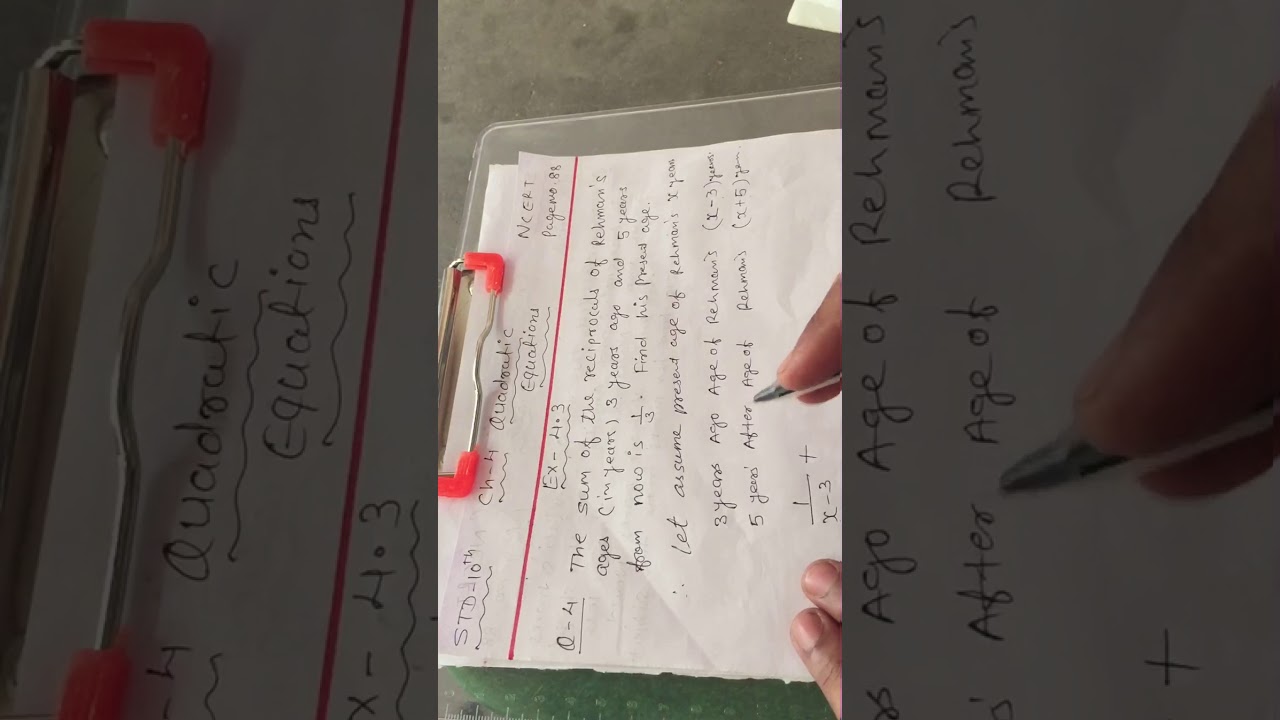 STD-10th Ch-4 Quadratic
Equations
NCERT
Page no. 88
Ex-4.3
Q-4 The sum of the reciprocals of Rehman's
ages (in years) 3 years ago and 5 years
from now is 1/3. Find his present age.
∴ Let assume present age of Rehman's x years
3 years Ago Age of Rehman's (x-3) years.
5 years' After Age of Rehman's (x+5) years.
1/x-3 +